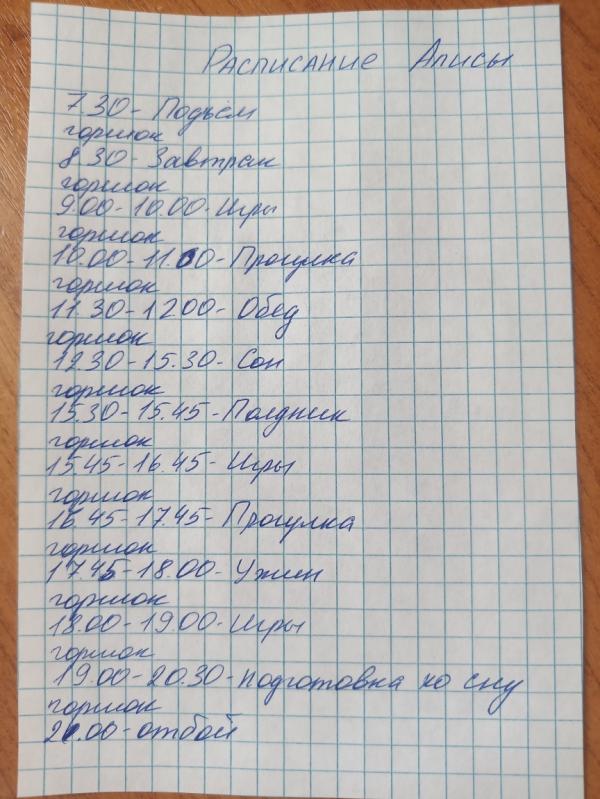 Расписание Алисы
7.30 - Подъём
горшок
8.30 - Завтрак
горшок
9.00 - 10.00 - Игры
горшок
10.00 - 11.00 - Прогулка
горшок
11.30 - 12.00 - Обед
горшок
12.30 - 15.30 - Сон
горшок
15.30 - 15.45 - Полдник
горшок
15.45 - 16.45 - Игры
горшок
16.45 - 17.45 - Прогулка
горшок
17.45 - 18.00 - Ужин
горшок
18.00 - 19.00 - Игры
горшок
19.00 - 20.30 - подготовка ко сну
горшок
21.00 - отбой